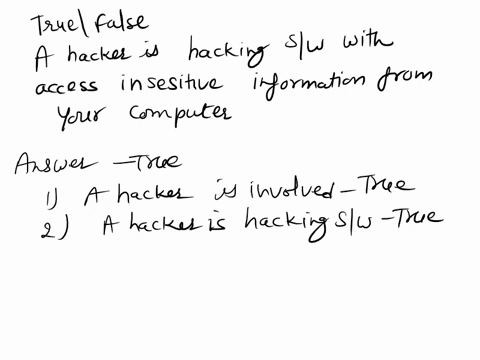 True/False
A hacker is hacking S/W with
access insesitive information from
your computer
Answer - True
1) A hacker is involved - True
2) A hacker is hacking S/W - True